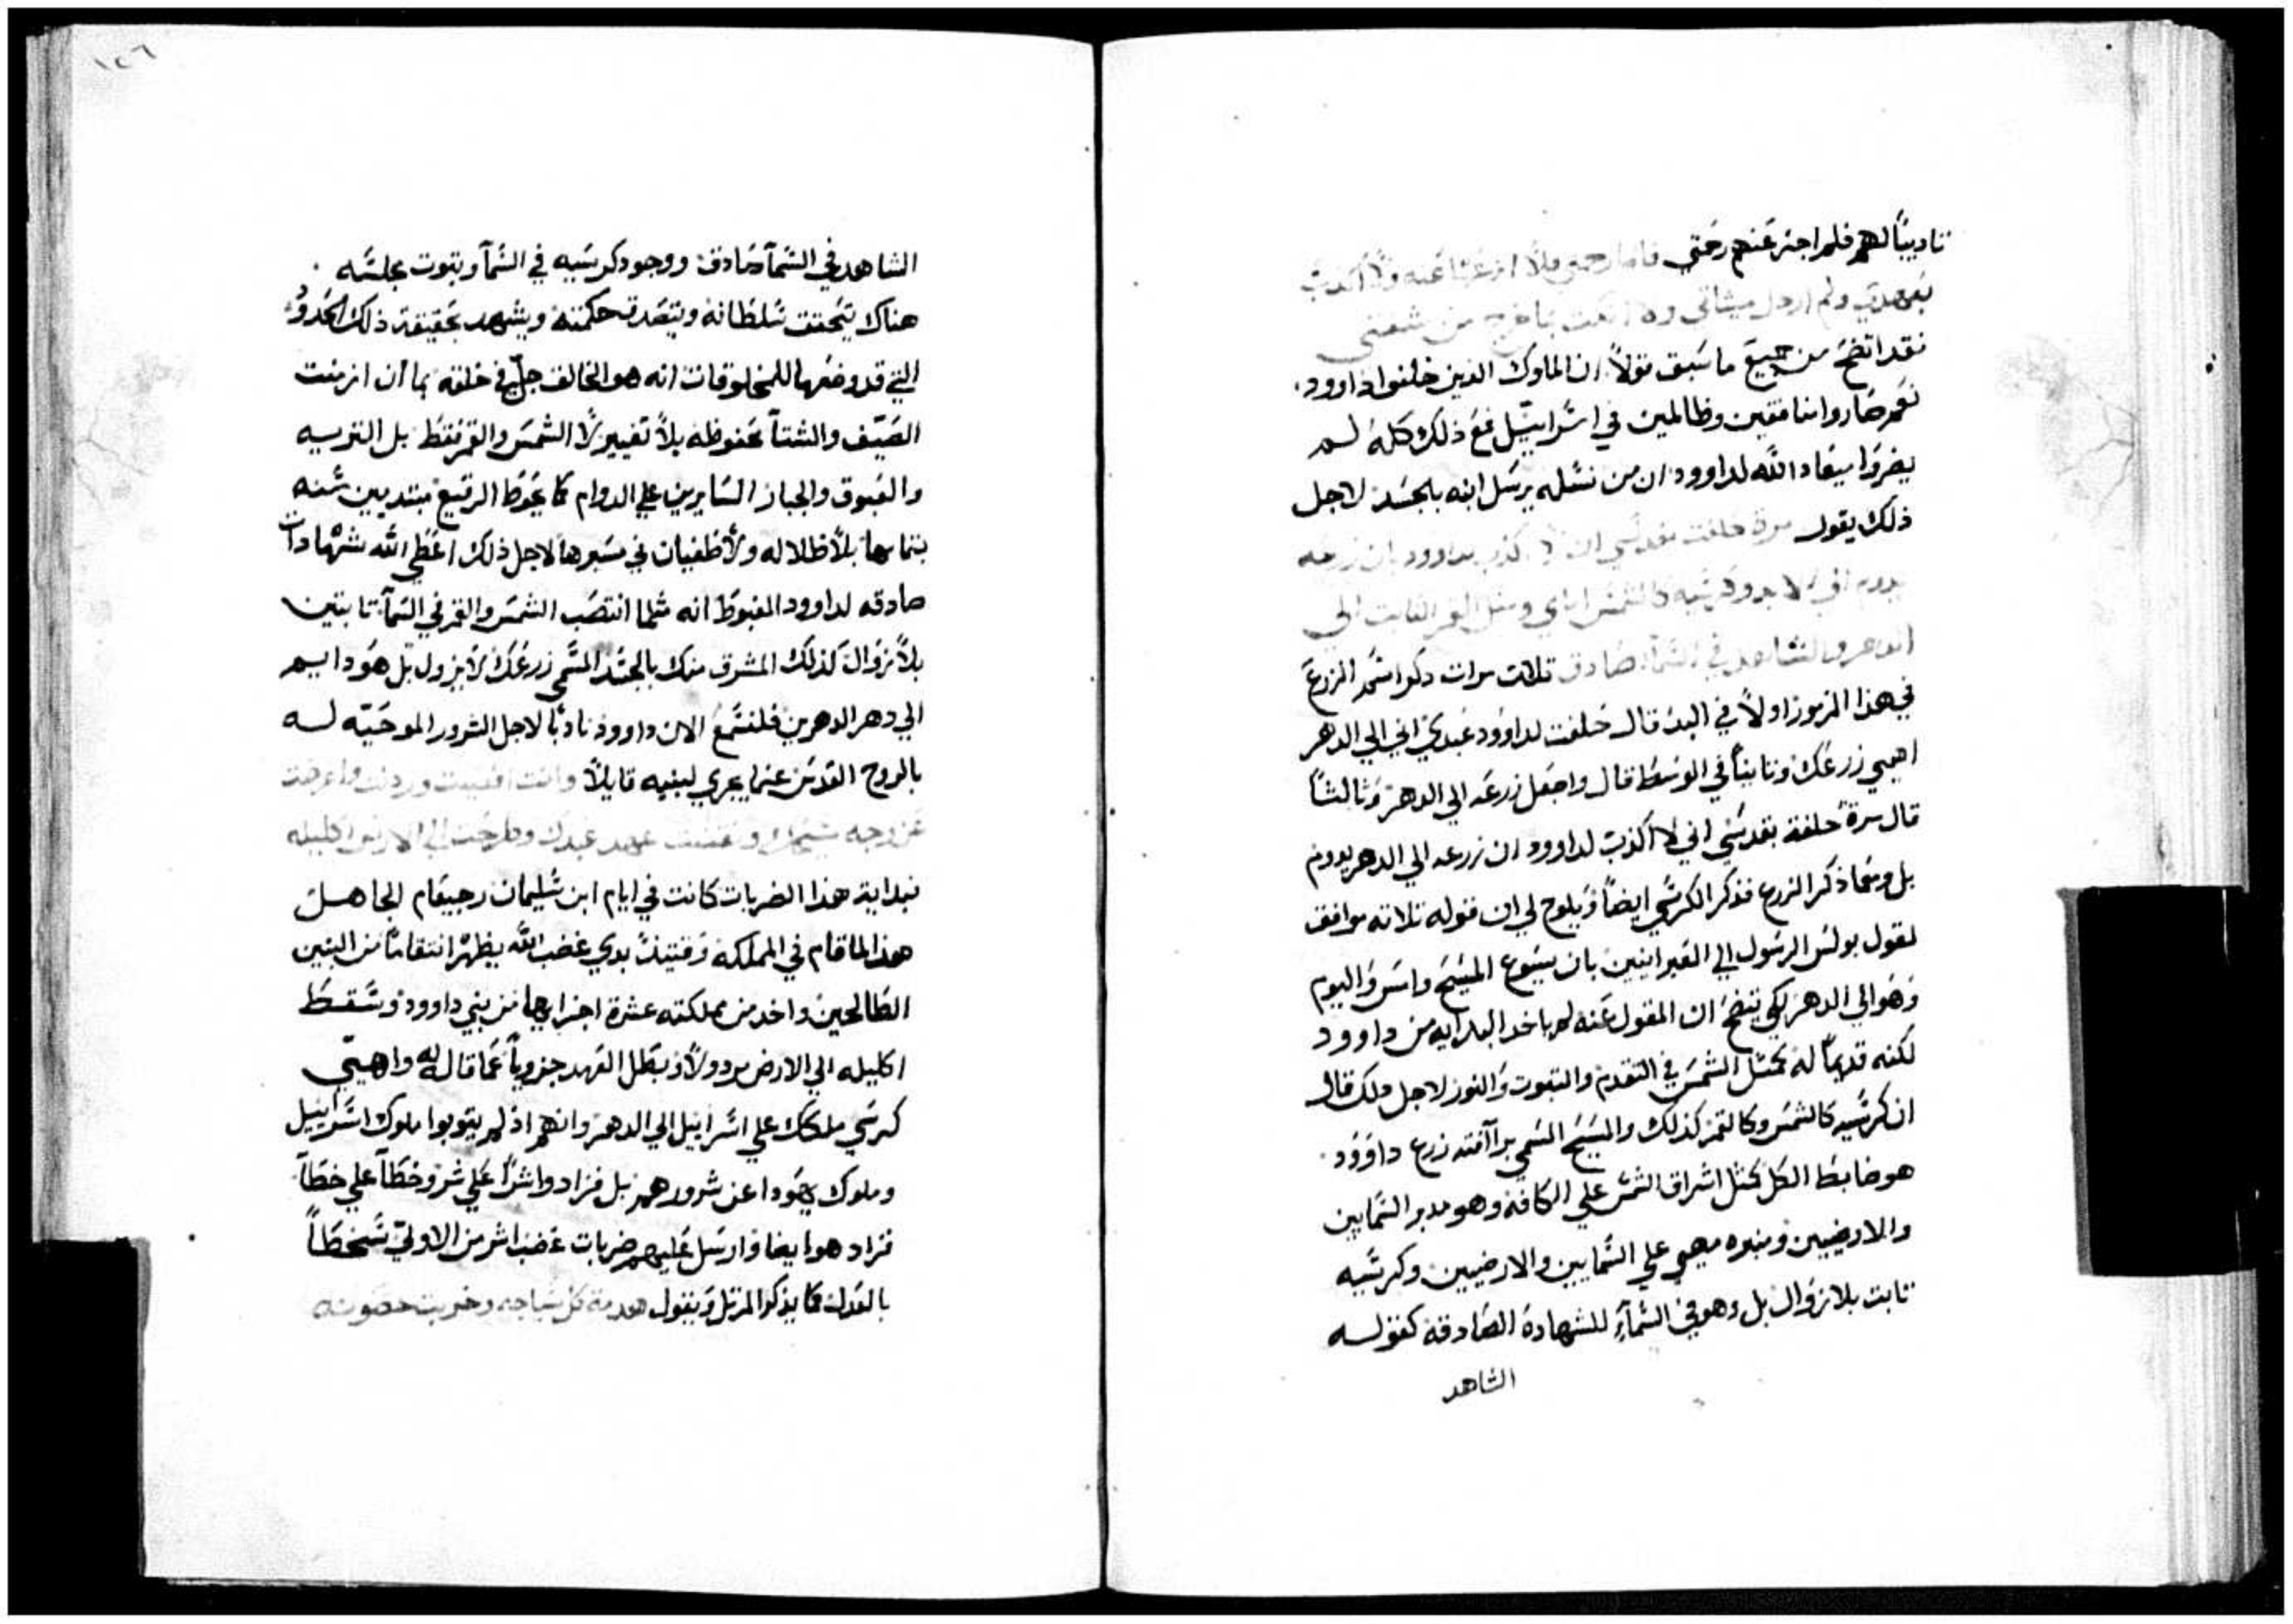 تاديباً لهم فلم اجز عنهم رحمتي فاما رحمتي فلا انزعها عنه ولا اكذب
بعهدي ولم ارذل ميثاقي ولا انكث بما خرج من شفتي
فقد اتضح من جميع ما سبق قولاً ان الملوك الذين خلفوا داوود
نعم صاروا منافقين وظالمين في اسراييل فمع ذلك كله لم
يضروا ميعاد الله لداوود ان من نسله يرسل ابنه بالجسد لاجل
ذلك يقول مرة حلفت بقدسي اني لا اكذب بداوود بان زرعه
يدوم الي الابد وكرسيه كالشمس امامي ومثل القمر الثابت الي
الدهر والشاهد في السمآ صادق تلات مرات دكر اسم الزرع
في هذا المزمور اولاً في البدء قال حلفت لداوود عبدي اني الي الدهر
اهيي زرعك وثانياً في الوسط قال واجعل زرعه الي الدهر وثالثاً
قال مرة حلفة بقدسي اني لا اكذب لداوود ان زرعه الي الدهر يدوم
بل ومعما ذكر الزرع فذكر الكرسي ايضاً ويلوح لي ان قوله تلاته موافق
لقول بولس الرسول الي العبرانيين بان يسوع المسيح وامس واليوم
وهو الي الدهر لكي يتضح ان المقول عنه لم ياخد البدايه من داوود
لكنه قديماً له كمثل الشمس في التقدم والتبوت والنور لاجل دلك قال
ان كرسيه كالشمس وكالقمر كذلك والمسيح المسمي برآافته زرع داوود
هو ضابط الكل كمثل اشراق الشمس علي الكافه وهو مدبر السمايين
والارضيين ومنبره مهيي علي السمايين والارضيين وكرسيه
تابت بلا زوال بل وهو في السمآء للشهادة الصادقه كقوله
الشاهد
١٢٦
الشاهد في السمآ صادق ووجود كرسيه في السمآ وتبوت مجلسه
هناك يتحقق سلطانه ويتصدق حكمته ويشهد بحقيقة ذلك الحدود
التي قد وضعها للمخلوقات انه هو الخالق جلي في خلقه بما ان ازمنت
الصيف والشتآ محفوظه بلا تغيير لا الشمس والقمر فقط بل التريه
والعيوق والجبار السايرين علي الدوام كما يحوط الرقيع مبتديين منه
بتمامها بلا ظلاله ولا طغيان في مسيرها لاجل ذلك اعطي الله شهادات
صادقه لداوود المغبوط انه مثلما انتصب الشمس والقمر في السمآ تابتين
بلا زوال كذلك المشرق منك بالجسد المسمي زرعك لا يزول بل هو دايم
الي دهر الدهرين فلنسمع الان داوود نادباً لاجل الشرور الموحيه له
بالروح القدس عما يجري لبنيه قايلاً وانت اقصيت ورذلت واعرضت
عن وجه مسيحك ونقضت عهد عبدك وطرحت الي الارض اكليله
فبداية هذا الضربات كانت في ايام ابن سليمان رحبعام الجاهل
هذا لما قام في المملكه وقتيذٍ بدي غضب الله يظهر انتقاماً من البنين
الطالحين واخد من مملكته عشرة اجزايها من بني داوود وسقط
اكليله الي الارض مردولاً وبطل العهد جزوياً عما قال له واهيي
كرسي ملكك علي اسراييل الي الدهر وانهم اذ لم يتوبوا ملوك اسراييل
وملوك يهودا عن شرورهم بل فزادوا شراً علي شر وخطآ علي خطآ
فزاد هو ايضا وارسل عليهم ضربات غضب اشر من الاولي سخطاً
بالعدل كما يذكر المرتل ويقول هدمة كل سياجه وخربت حصونه